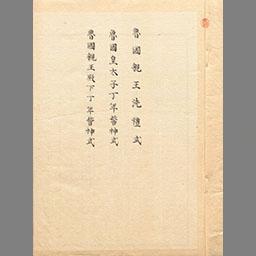 魯國親王洗禮式
魯國皇太子丁年誓神式
魯國親王殿下丁年誓神式